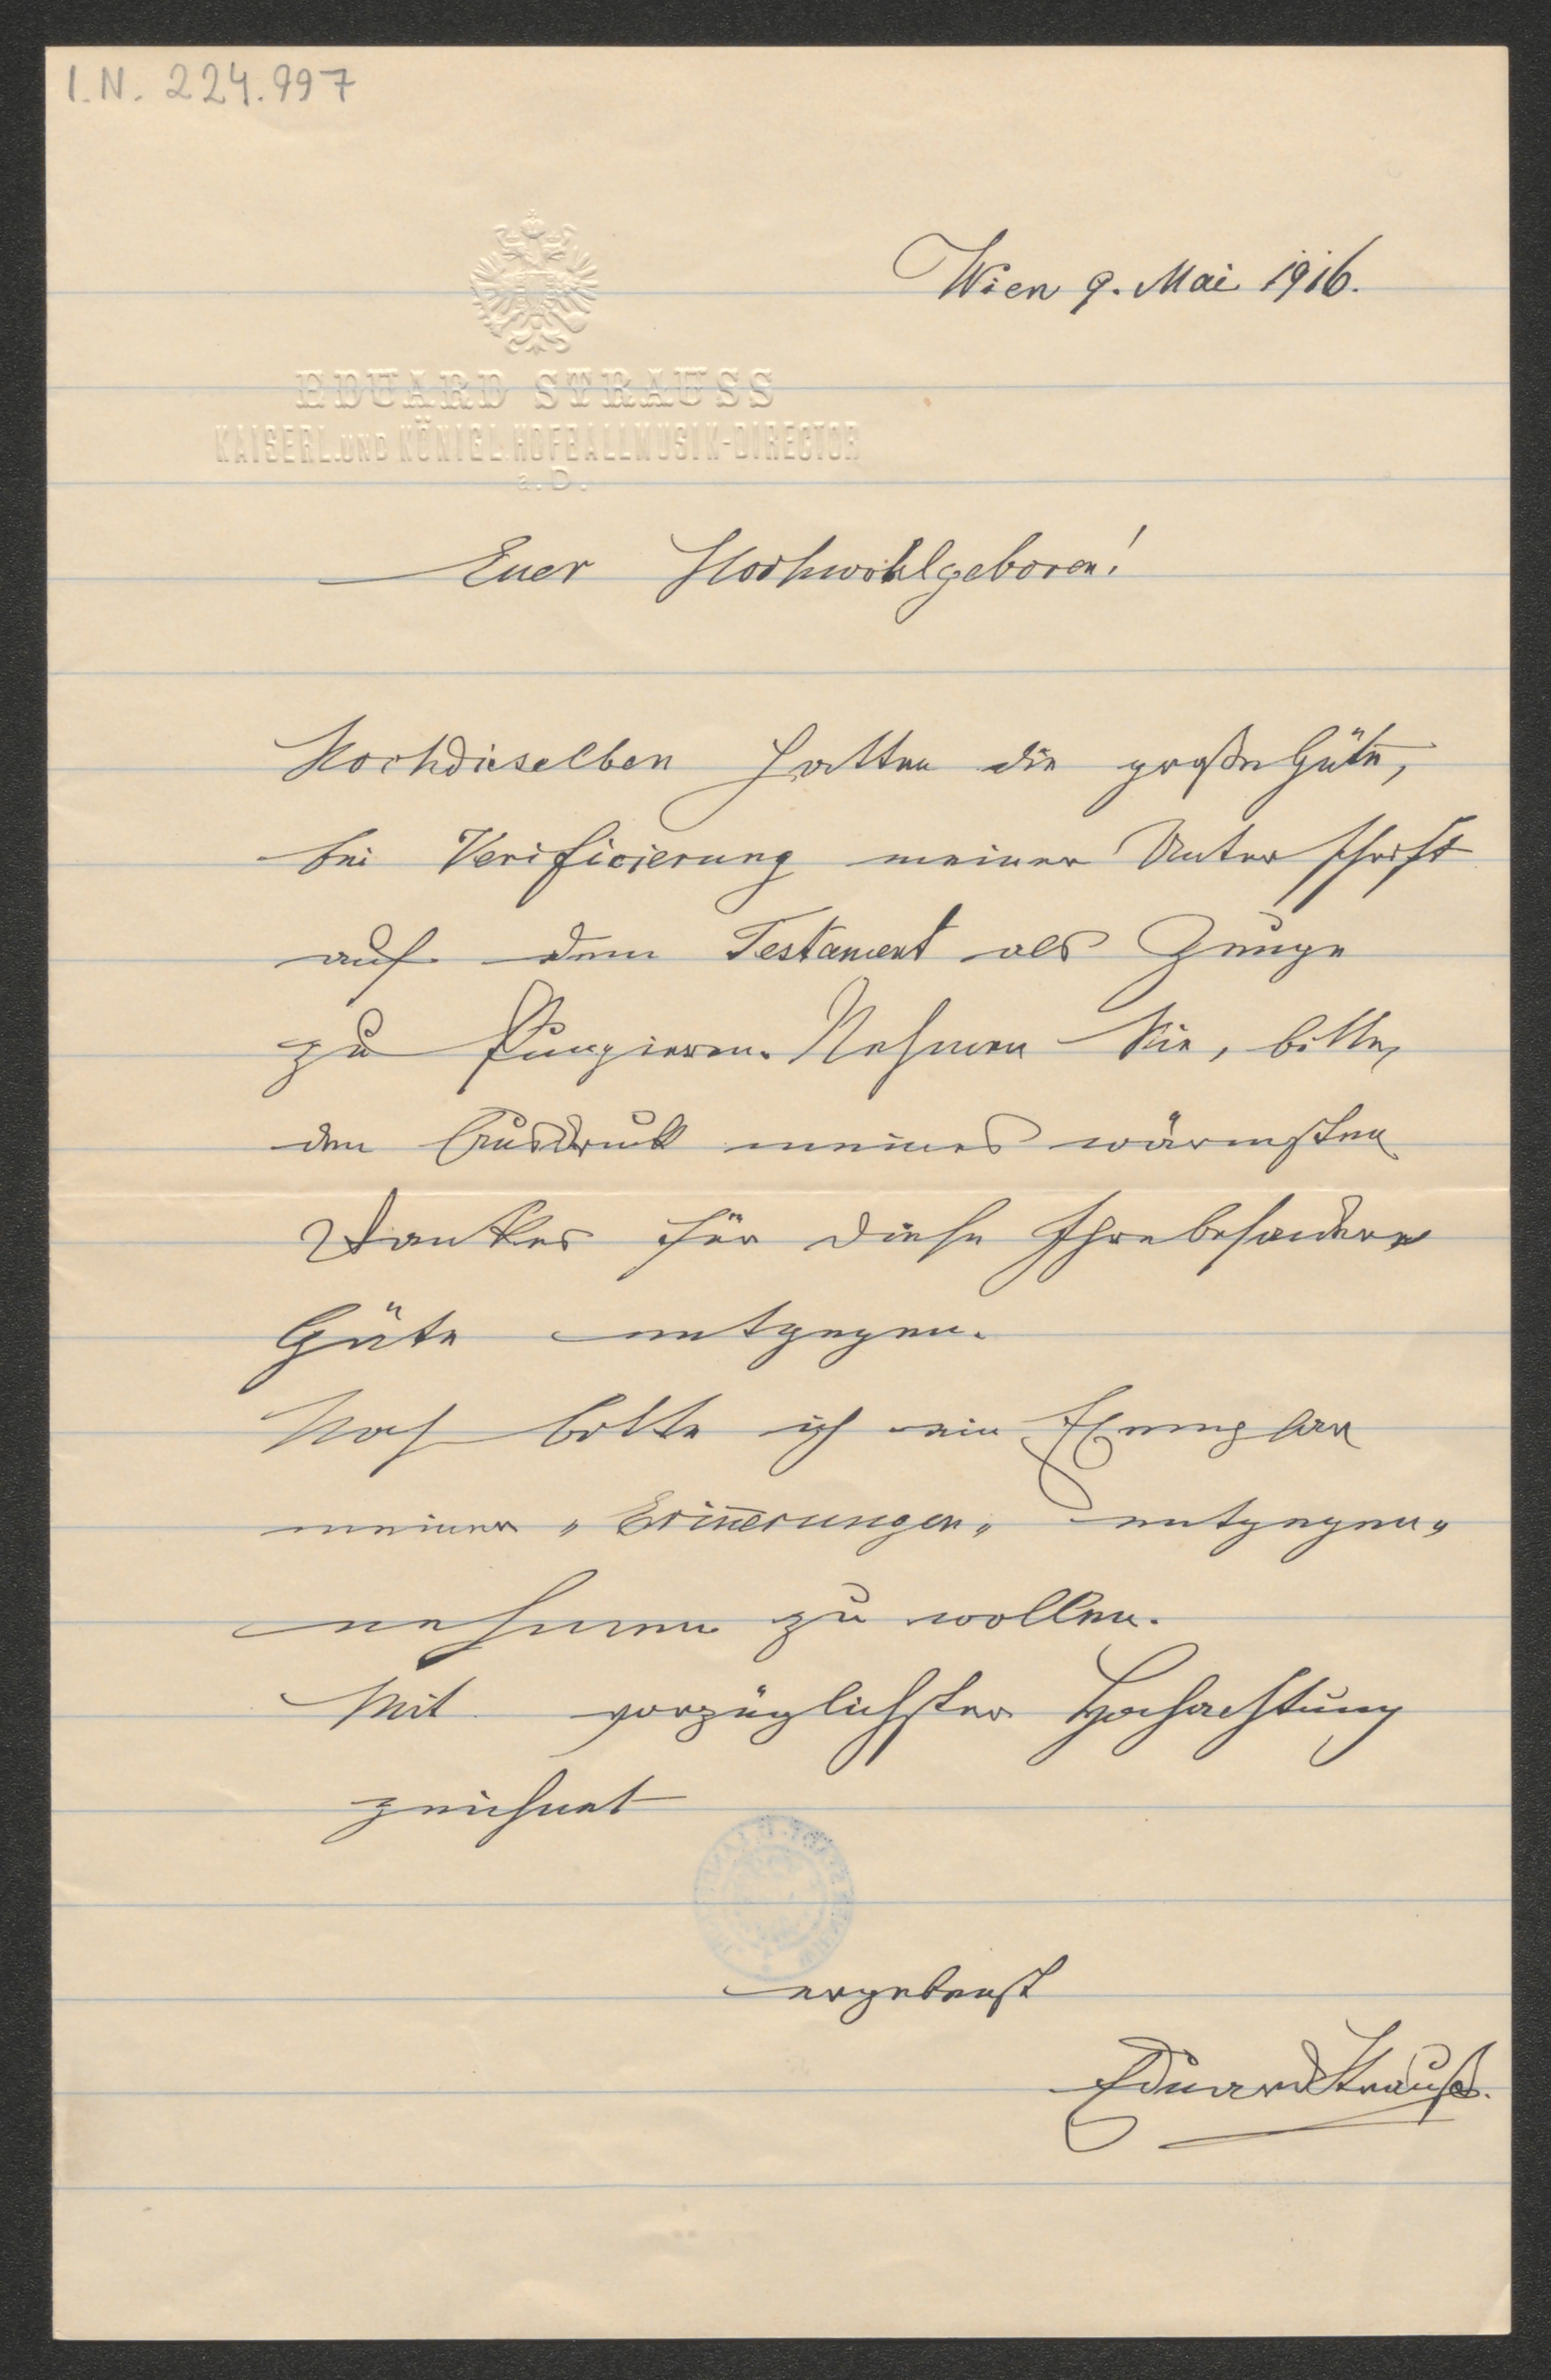 I.N. 224.997
Wien 9. Mai 1916.
EDUARD STRAUSS
KAISERL. UND KÖNIGL. HOFBALLMUSIK-DIRECTOR
a. D.
Euer Hochwohlgeboren!
Hochdieselben hatten die große Güte,
bei Verificierung meiner Unterschrift
auf dem Testament als Zeuge
zu fungieren. Nehmen Sie, bitte,
den Ausdruck meines wärmsten
Dankes für diese Ihre besondere
Güte entgegen.
Noch bitte ich ein Exemplar
meiner „Erin̄erungen„ entgegen„
nehmen zu wollen.
Mit vorzüglichster Hochachtung
zeichnet
ergebenst
Eduard Strauß.